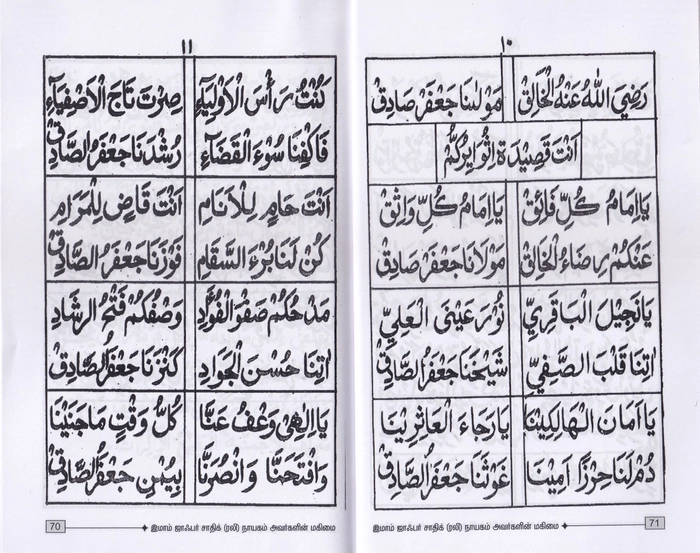 ١٠
رَضِيَ اللهُ عَنْهُ الْخَالِقْ مَوْلٰىنَا جَعْفَرْ صَادِقْ
اَنْتَ قَصِيْدَة
يَااِمَامُ كُلِّ فَائِقْ يَااِمَامُ كُلِّ وَاثِقْ
عَنْكُمْ رِضَاءُ الْخَالِقْ مَوْلَانَا جَعْفَرْ صَادِقْ
يَانَجِيْلَ الْبَاقِرِيِّ نُوْرَ عَيْنَىِ الْعَلِيِّ
اٰتِنَا قَلْبَ الصَّفِيِّ شَيْخَنَا جَعْفَرُ الصَّادِقْ
يَااَمَانَ الْهَالِكِيْنَا يَارَجَاءَ الْعَاثِرِيْنَا
دُمْ لَنَا حِرْزًا اَمِيْنَا غَوْثَنَا جَعْفَرُ الصَّادِقْ
இமாம் ஜாஃபர் சாதிக் (ரலி) நாயகம் அவர்களின் மகிமை 71
١١
كُنْتَ رَأْسَ الْاَوْلِيَآءِ صِرْتَ تَاجَ الْاَصْفِيَآءِ
فَاكْفِنَا سُوْءَ الْقَضَآءِ رُشْدَنَا جَعْفَرُ الصَّادِقْ
اَنْتَ حَامٍ لِلْاَنَامِ اَنْتَ قَاضٍ لِلْمَرَامِ
كُنْ لَنَا بُرْءَ السَّقَامِ فَوْزَنَا جَعْفَرُ الصَّادِقْ
مَدْحُكُمْ صَفْوُ الْفُوَادِ وَصْفُكُمْ فَتْحُ الرَّشَادِ
اٰتِنَا حُسْنَ الْجَوَادِ كَنْزَنَا جَعْفَرُ الصَّادِقْ
يَااِلٰهِىْ وَعْفُ عَنَّا كُلَّ وَقْتٍ مَاجَنَيْنَا
وَافْتَحَنَّا وَانْصُرَنَّا بِيُمْنِ جَعْفَرُ الصَّادِقْ
70 இமாம் ஜாஃபர் சாதிக் (ரலி) நாயகம் அவர்களின் மகிமை